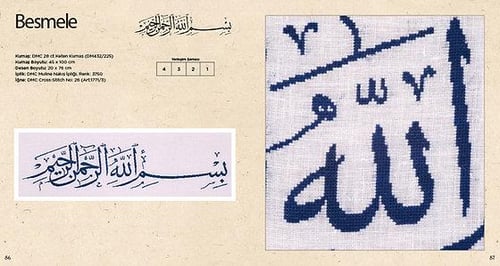 Besmele
بسم الله الرحمن الرحيم
Kumaş: DMC 28 ct Keten Kumaş (DM432/225)
Kumaş Boyutu: 45 x 100 cm
Desen Boyutu: 20 x 76 cm
İplik: DMC Muline Nakış İpliği, Renk: 3750
İğne: DMC Cross-Stitch No: 26 (Art.1771/3)
Yerleşim Şeması
4 3 2 1
بِسْمِ اللّٰهِ الرَّحْمٰنِ الرَّحِيمِ
الله
86
87